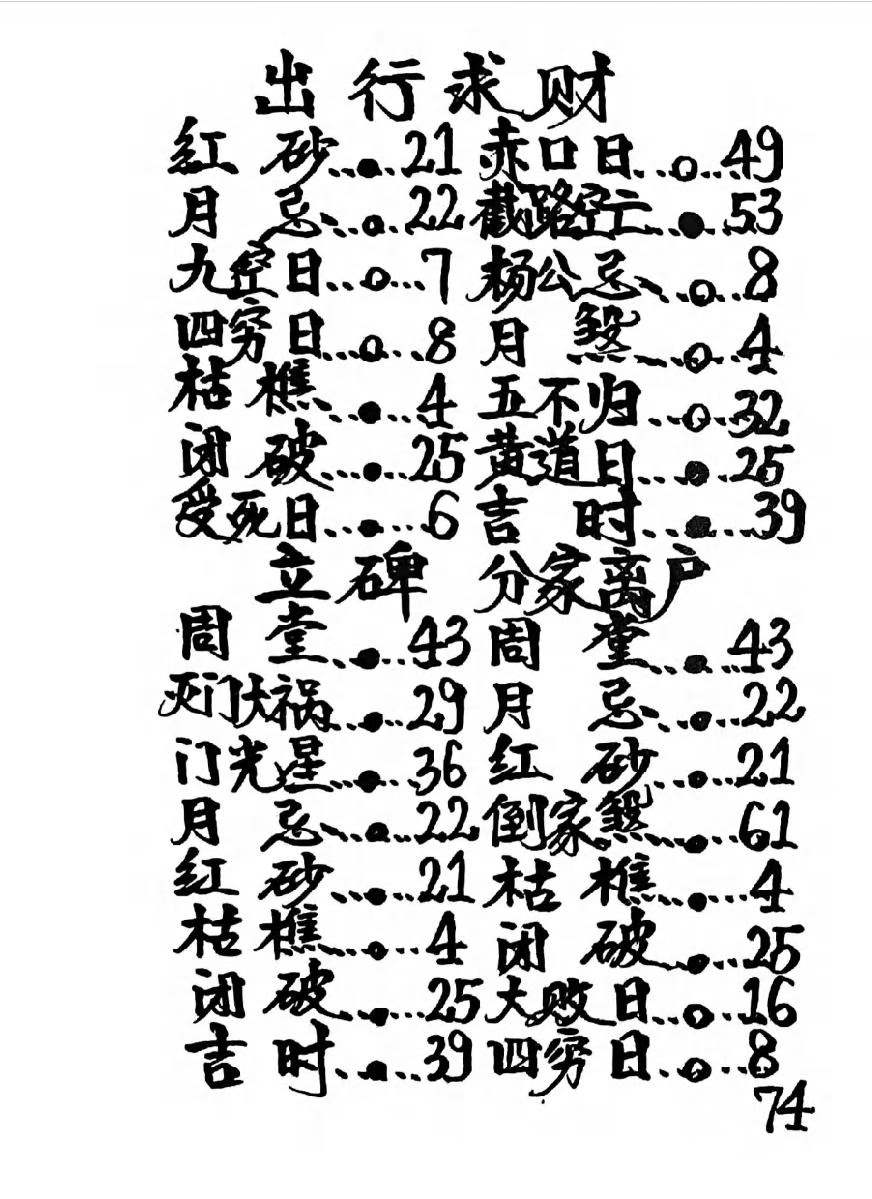 出行求财
红砂...●...21 赤口日...○...49
月忌...○...22 截路空亡...●...53
九空日...○...7 杨公忌...○...8
四穷日...○...8 月煞...○...4
枯樵...●...4 五不归...○...32
闭破...●...25 黄道日...●...25
受死日...●...6 吉时...●...39
立碑 分家离户
周堂...●...43 周堂...●...43
灭门大祸...●...29 月忌...●...22
门光星...●...36 红砂...●...21
月忌...●...22 倒家煞...●...61
红砂...●...21 枯樵...●...4
枯樵...●...4 闭破...●...25
闭破...●...25 大败日...○...16
吉时...●...39 四穷日...○...8
74